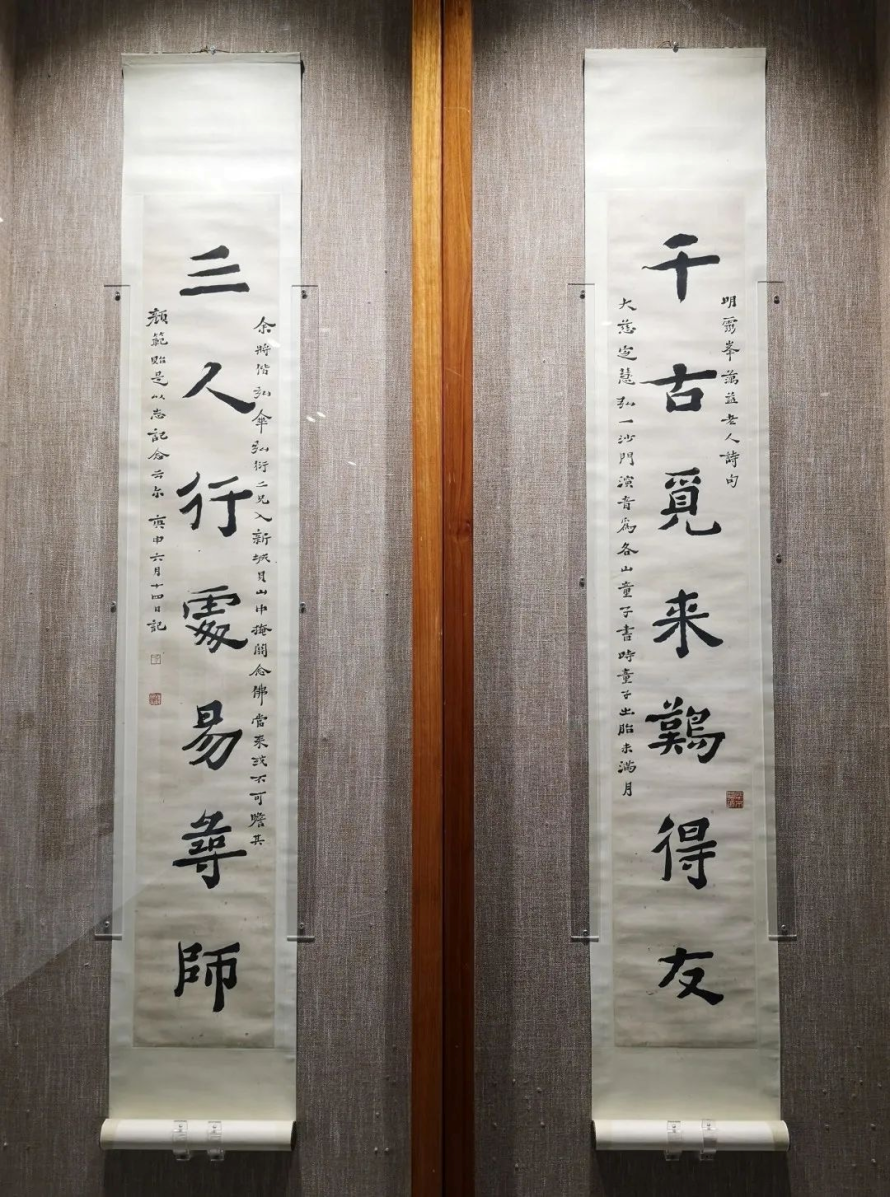 明靈峯蕅益老人詩句
千古覓来難得友
大慈定慧弘一沙門演音爲各山童子書時童子出胎未滿月
余將偕弘傘弘衍二兄入新城貝山中掩關念佛當来或不可瞻其
三人行處易尋師
顏範貽是以志記念云尔 庚申六月十四日記